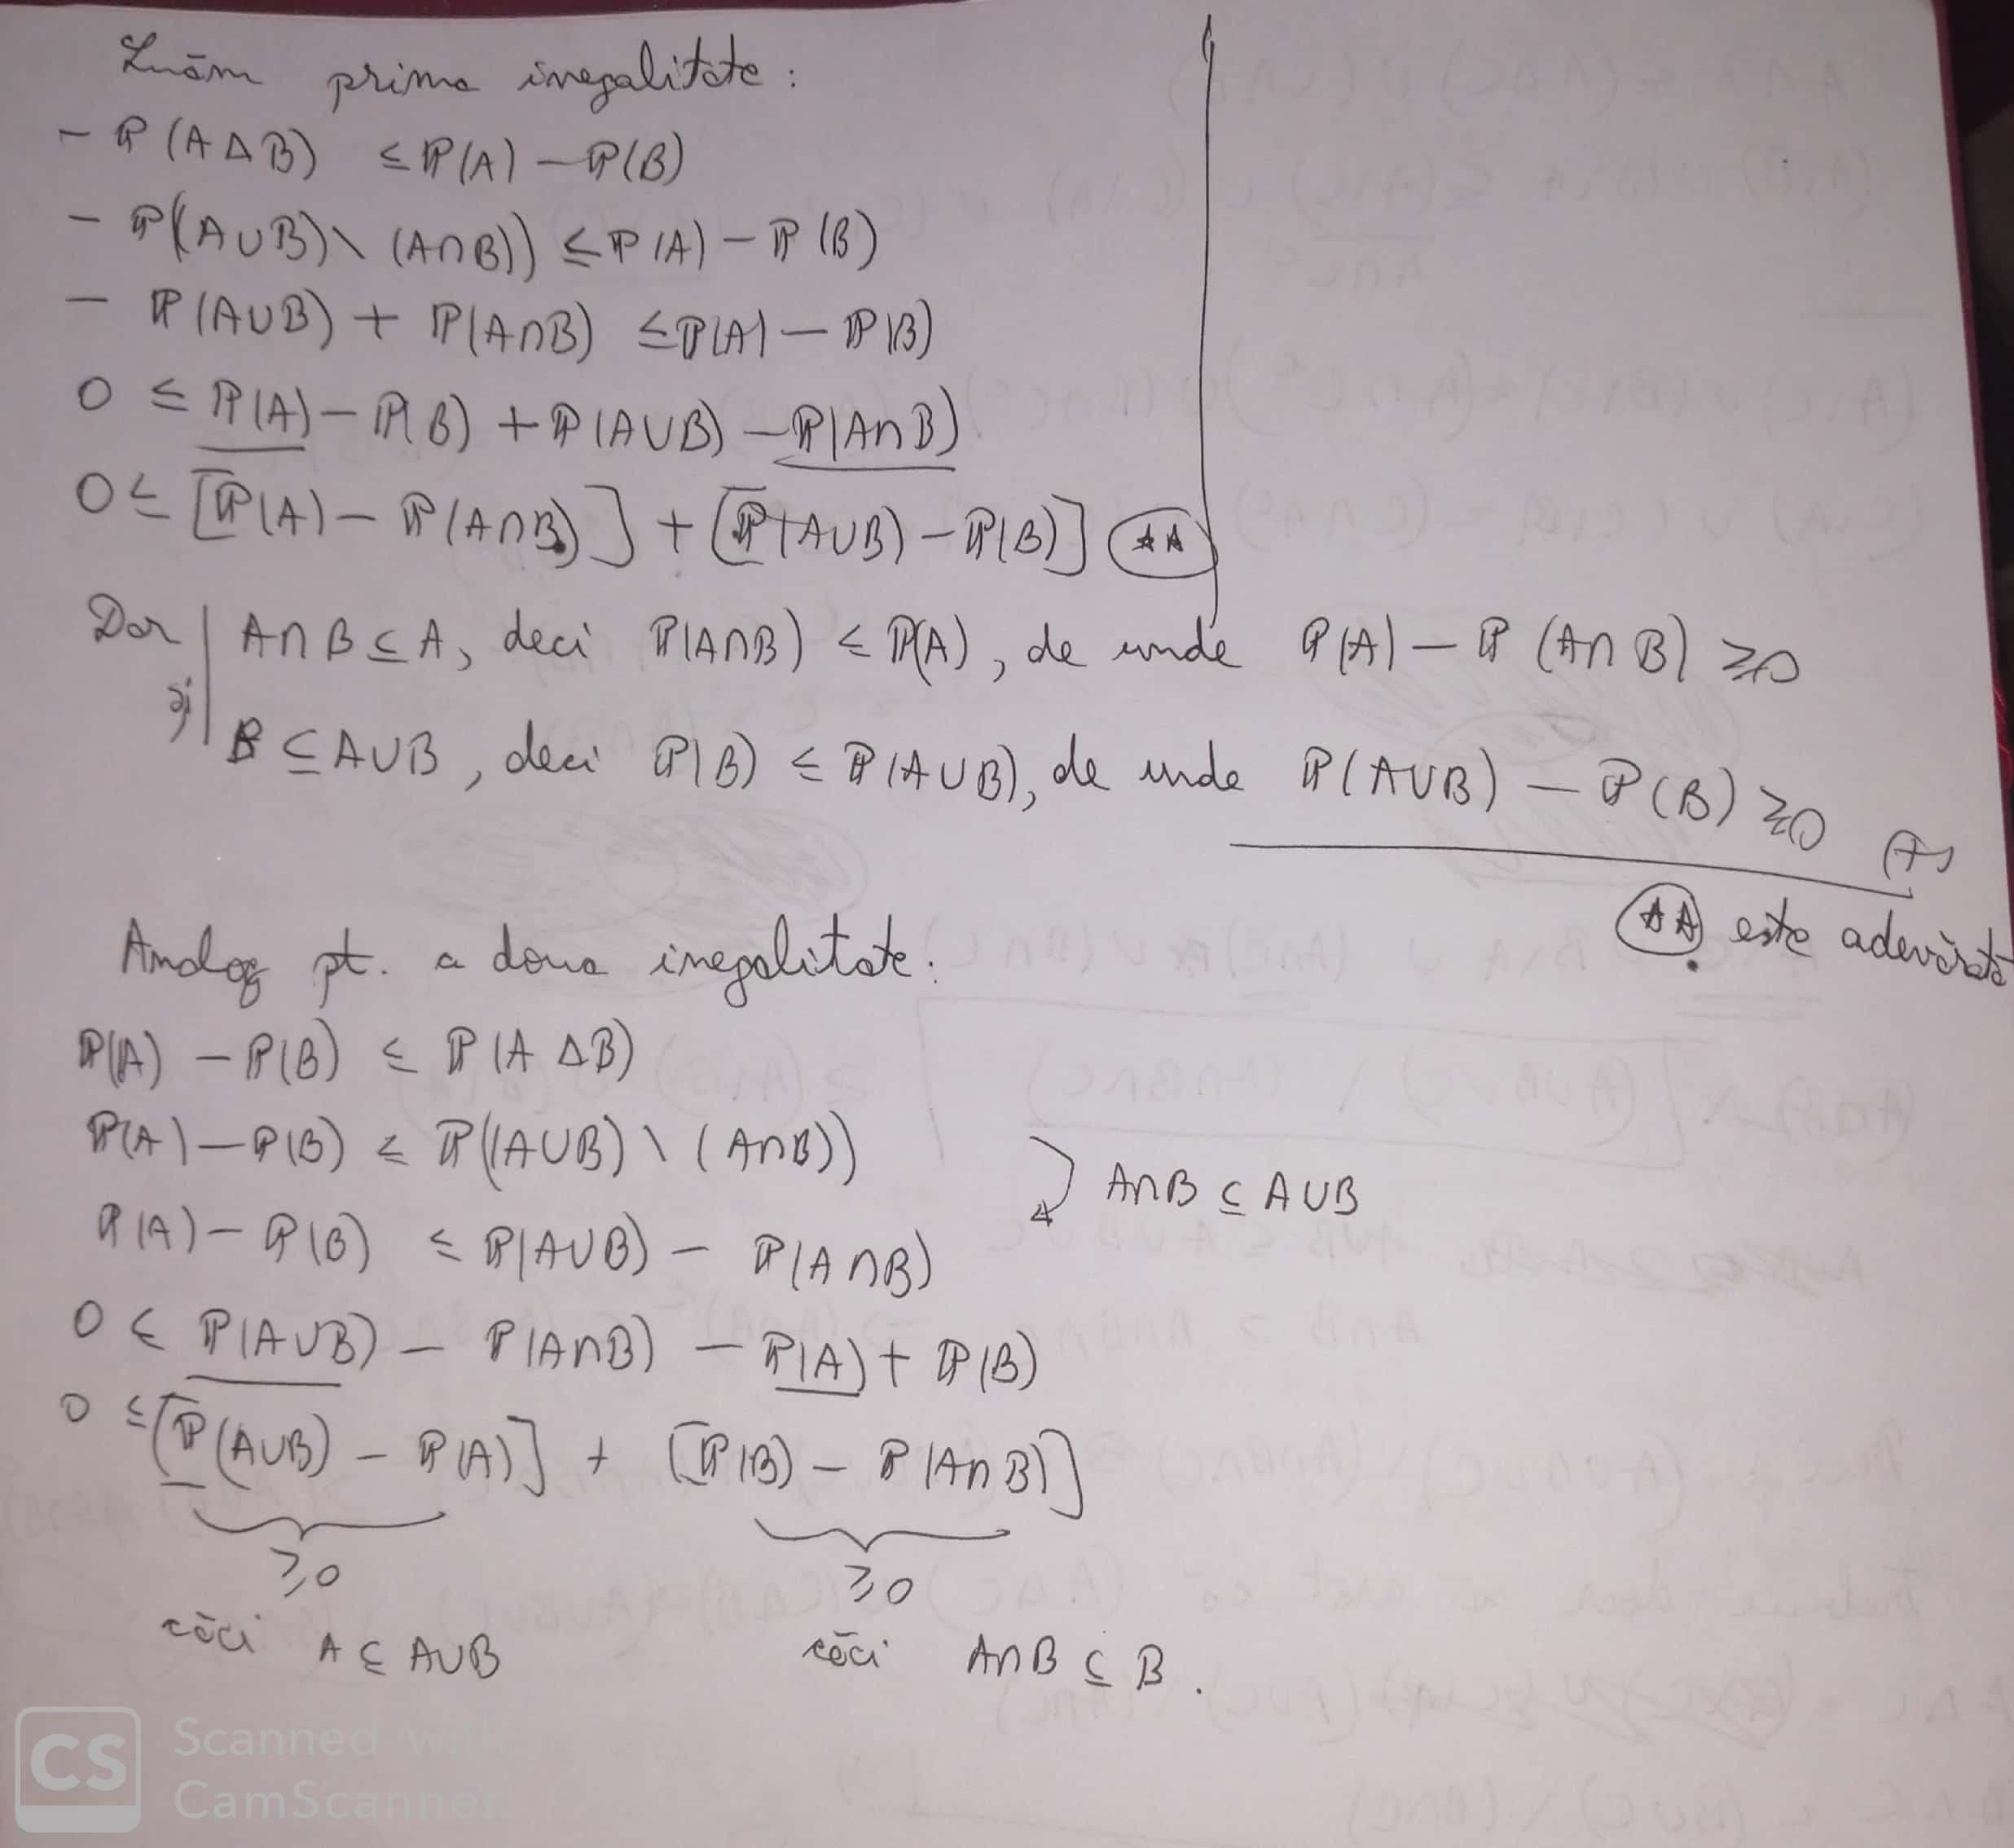 Luăm prima inegalitate:
- ℙ(A Δ B) ≤ ℙ(A) - ℙ(B)
- ℙ((A∪B) \ (A∩B)) ≤ ℙ(A) - ℙ(B)
- ℙ(A∪B) + ℙ(A∩B) ≤ ℙ(A) - ℙ(B)
0 ≤ ℙ(A) - ℙ(B) + ℙ(A∪B) - ℙ(A∩B)
0 ≤ [ℙ(A) - ℙ(A∩B)] + [ℙ(A∪B) - ℙ(B)] ★★
Dar A∩B ⊆ A, deci ℙ(A∩B) ≤ ℙ(A), de unde ℙ(A) - ℙ(A∩B) ≥ 0
și B ⊆ A∪B, deci ℙ(B) ≤ ℙ(A∪B), de unde ℙ(A∪B) - ℙ(B) ≥ 0 (+)
★★ este adevărată
Analog pt. a doua inegalitate:
ℙ(A) - ℙ(B) ≤ ℙ(A Δ B)
ℙ(A) - ℙ(B) ≤ ℙ((A∪B) \ (A∩B))
A∩B ⊆ A∪B
ℙ(A) - ℙ(B) ≤ ℙ(A∪B) - ℙ(A∩B)
0 ≤ ℙ(A∪B) - ℙ(A∩B) - ℙ(A) + ℙ(B)
0 ≤ [ℙ(A∪B) - ℙ(A)] + [ℙ(B) - ℙ(A∩B)]
≥0 ≥0
căci A ⊆ A∪B căci A∩B ⊆ B.
CS Scanned with
CamScanner